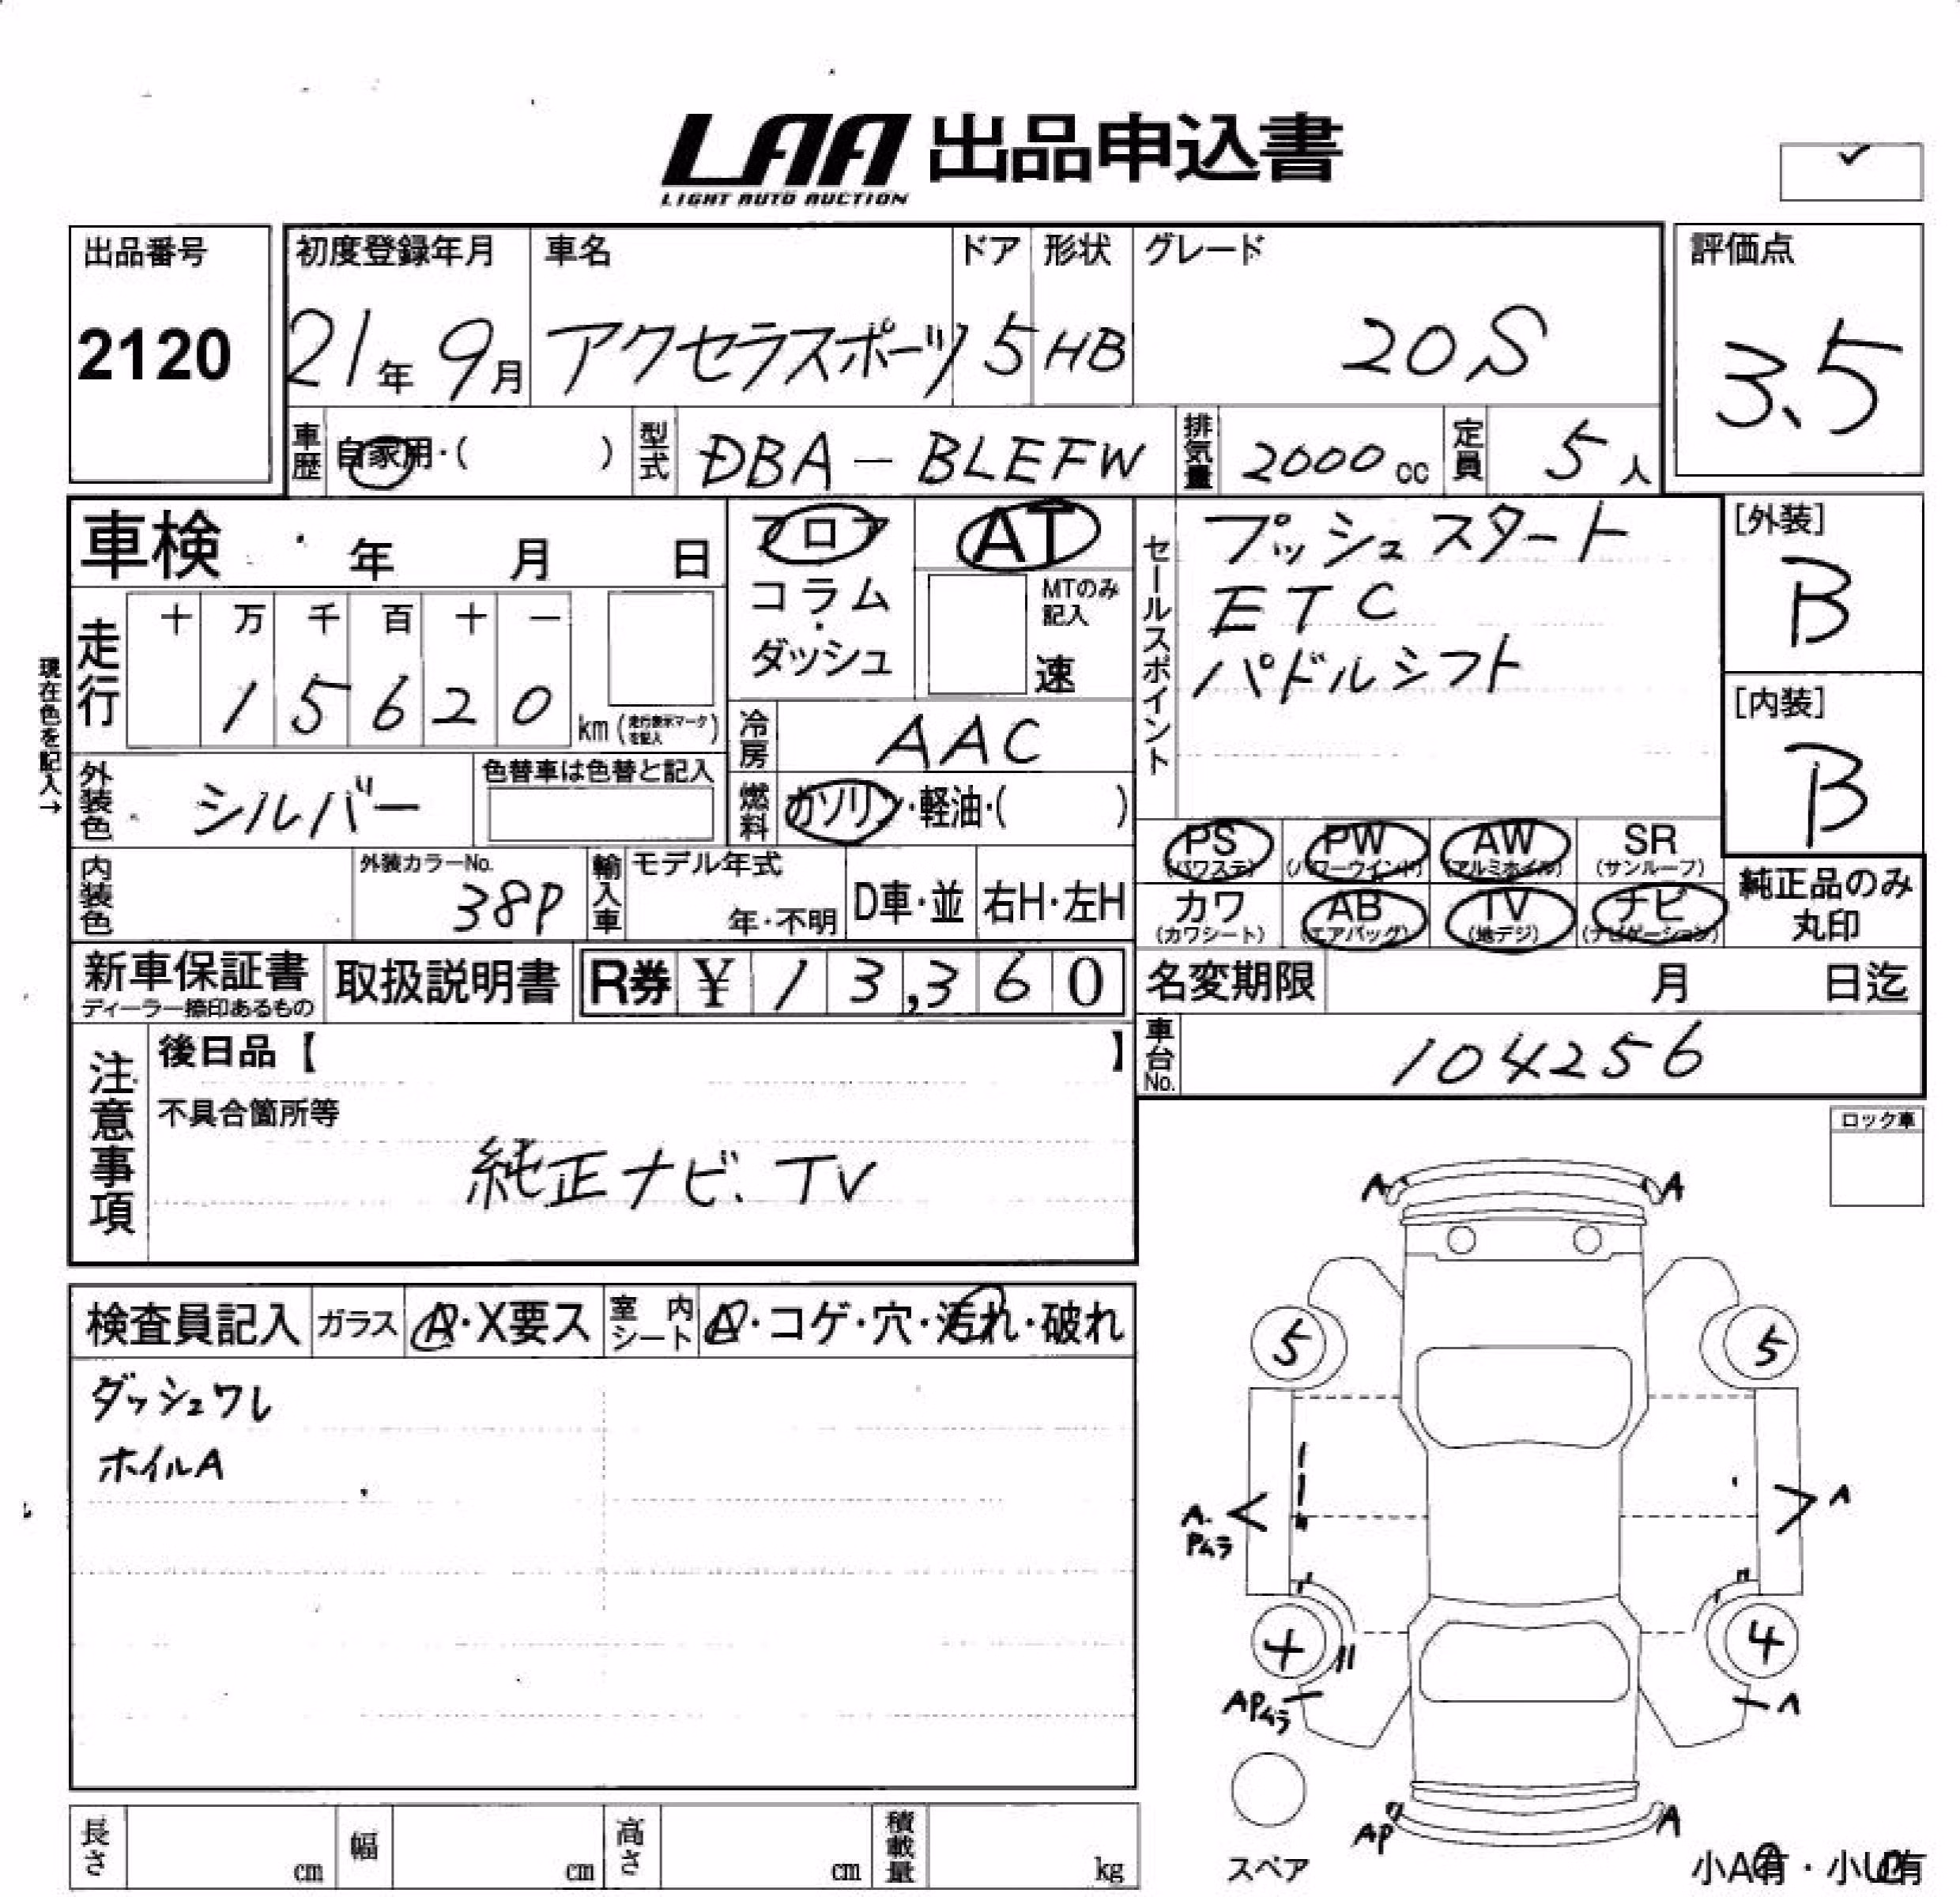 LAA 出品申込書
LIGHT AUTO AUCTION
出品番号
2120
初度登録年月
21年 9月
車名
アクセラスポーツ
ドア
5
形状
HB
グレード
20S
評価点
3.5
車歴
自家用・( )
型式
DBA-BLEFW
排気量
2000 cc
定員
5人
車検 年 月 日
フロア
コラム・ダッシュ
AT
MTのみ記入
速
セールスポイント
プッシュスタート
ETC
パドルシフト
[外装]
B
[内装]
B
現在色を記入→
走行
十 万 千 百 十 一
1 5 6 2 0
km (走行表示マークを記入)
冷房
AAC
外装色
シルバー
色替車は色替と記入
燃料
ガソリン・軽油・( )
PS (パワステ)
PW (パワーウインド)
AW (アルミホイル)
SR (サンルーフ)
カワ (カワシート)
AB (エアバッグ)
TV (地デジ)
ナビ (ナビゲーション)
純正品のみ丸印
内装色
外装カラーNo.
38P
輸入車
モデル年式
年・不明
D車・並
右H・左H
新車保証書
ディーラー捺印あるもの
取扱説明書
R券 ¥ 1 3,3 6 0
名変期限 月 日迄
車台No.
104256
注意事項
後日品【 】
不具合箇所等
純正ナビ.TV
ロック車
検査員記入
ガラス
A・X要ス
室内シート
A・コゲ・穴・汚れ・破れ
ダッシュワレ
ホイルA
A A
5 5
A. Pムラ
A
4 4
APムラ
A
AP A
スペア
小A有・小U有
長さ cm
幅 cm
高さ cm
積載量 kg